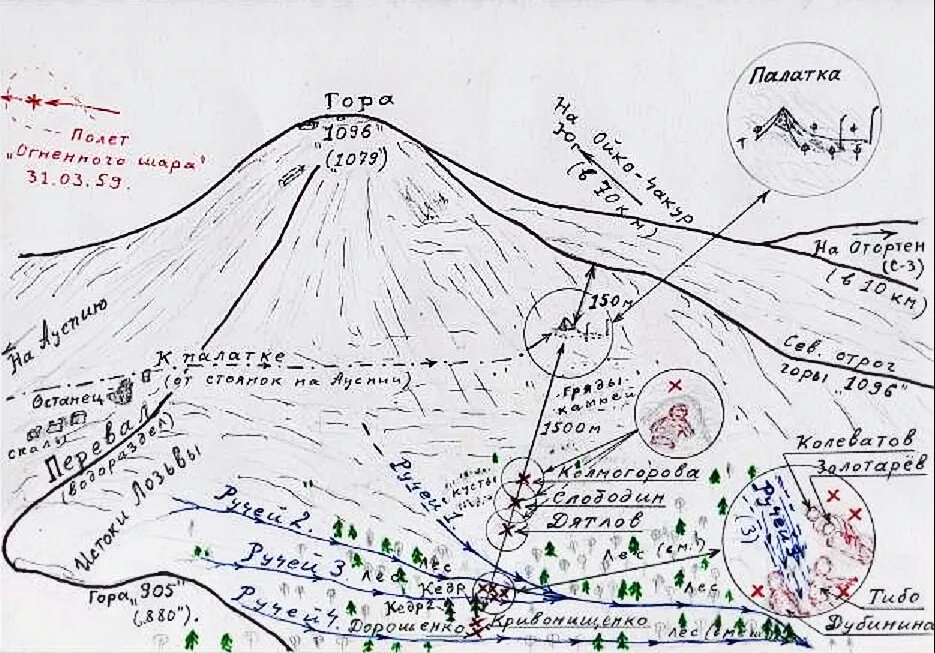 Палатка
Гора
"1096"
(1079)
Полет
"Огненного шара"
31.03.59.
На Ойко-Чакур
Юг
(в 70 км)
На Отортен
(С-З)
(в 10 км)
150м
На Ауспию
К палатке
(от стоянок на Ауспии)
Сев. отрог
горы "1096"
Останец
скалы
Перевал
(водораздел)
Истоки Лозьвы
Гряды
камней
1500м
Колеватов
Золотарёв
Ручей 1
кусты
Колмогорова
Слободин
Дятлов
Ручей 2.
Лес
Лес (см.)
Ручей
(3)
Ручей 3
Лес
Кедр
Лес
Гора "905"
("880").
Ручей 4.
Кедр2
Дорошенко
Кривонищенко
Лес (смеш.)
Тибо
Дубинина